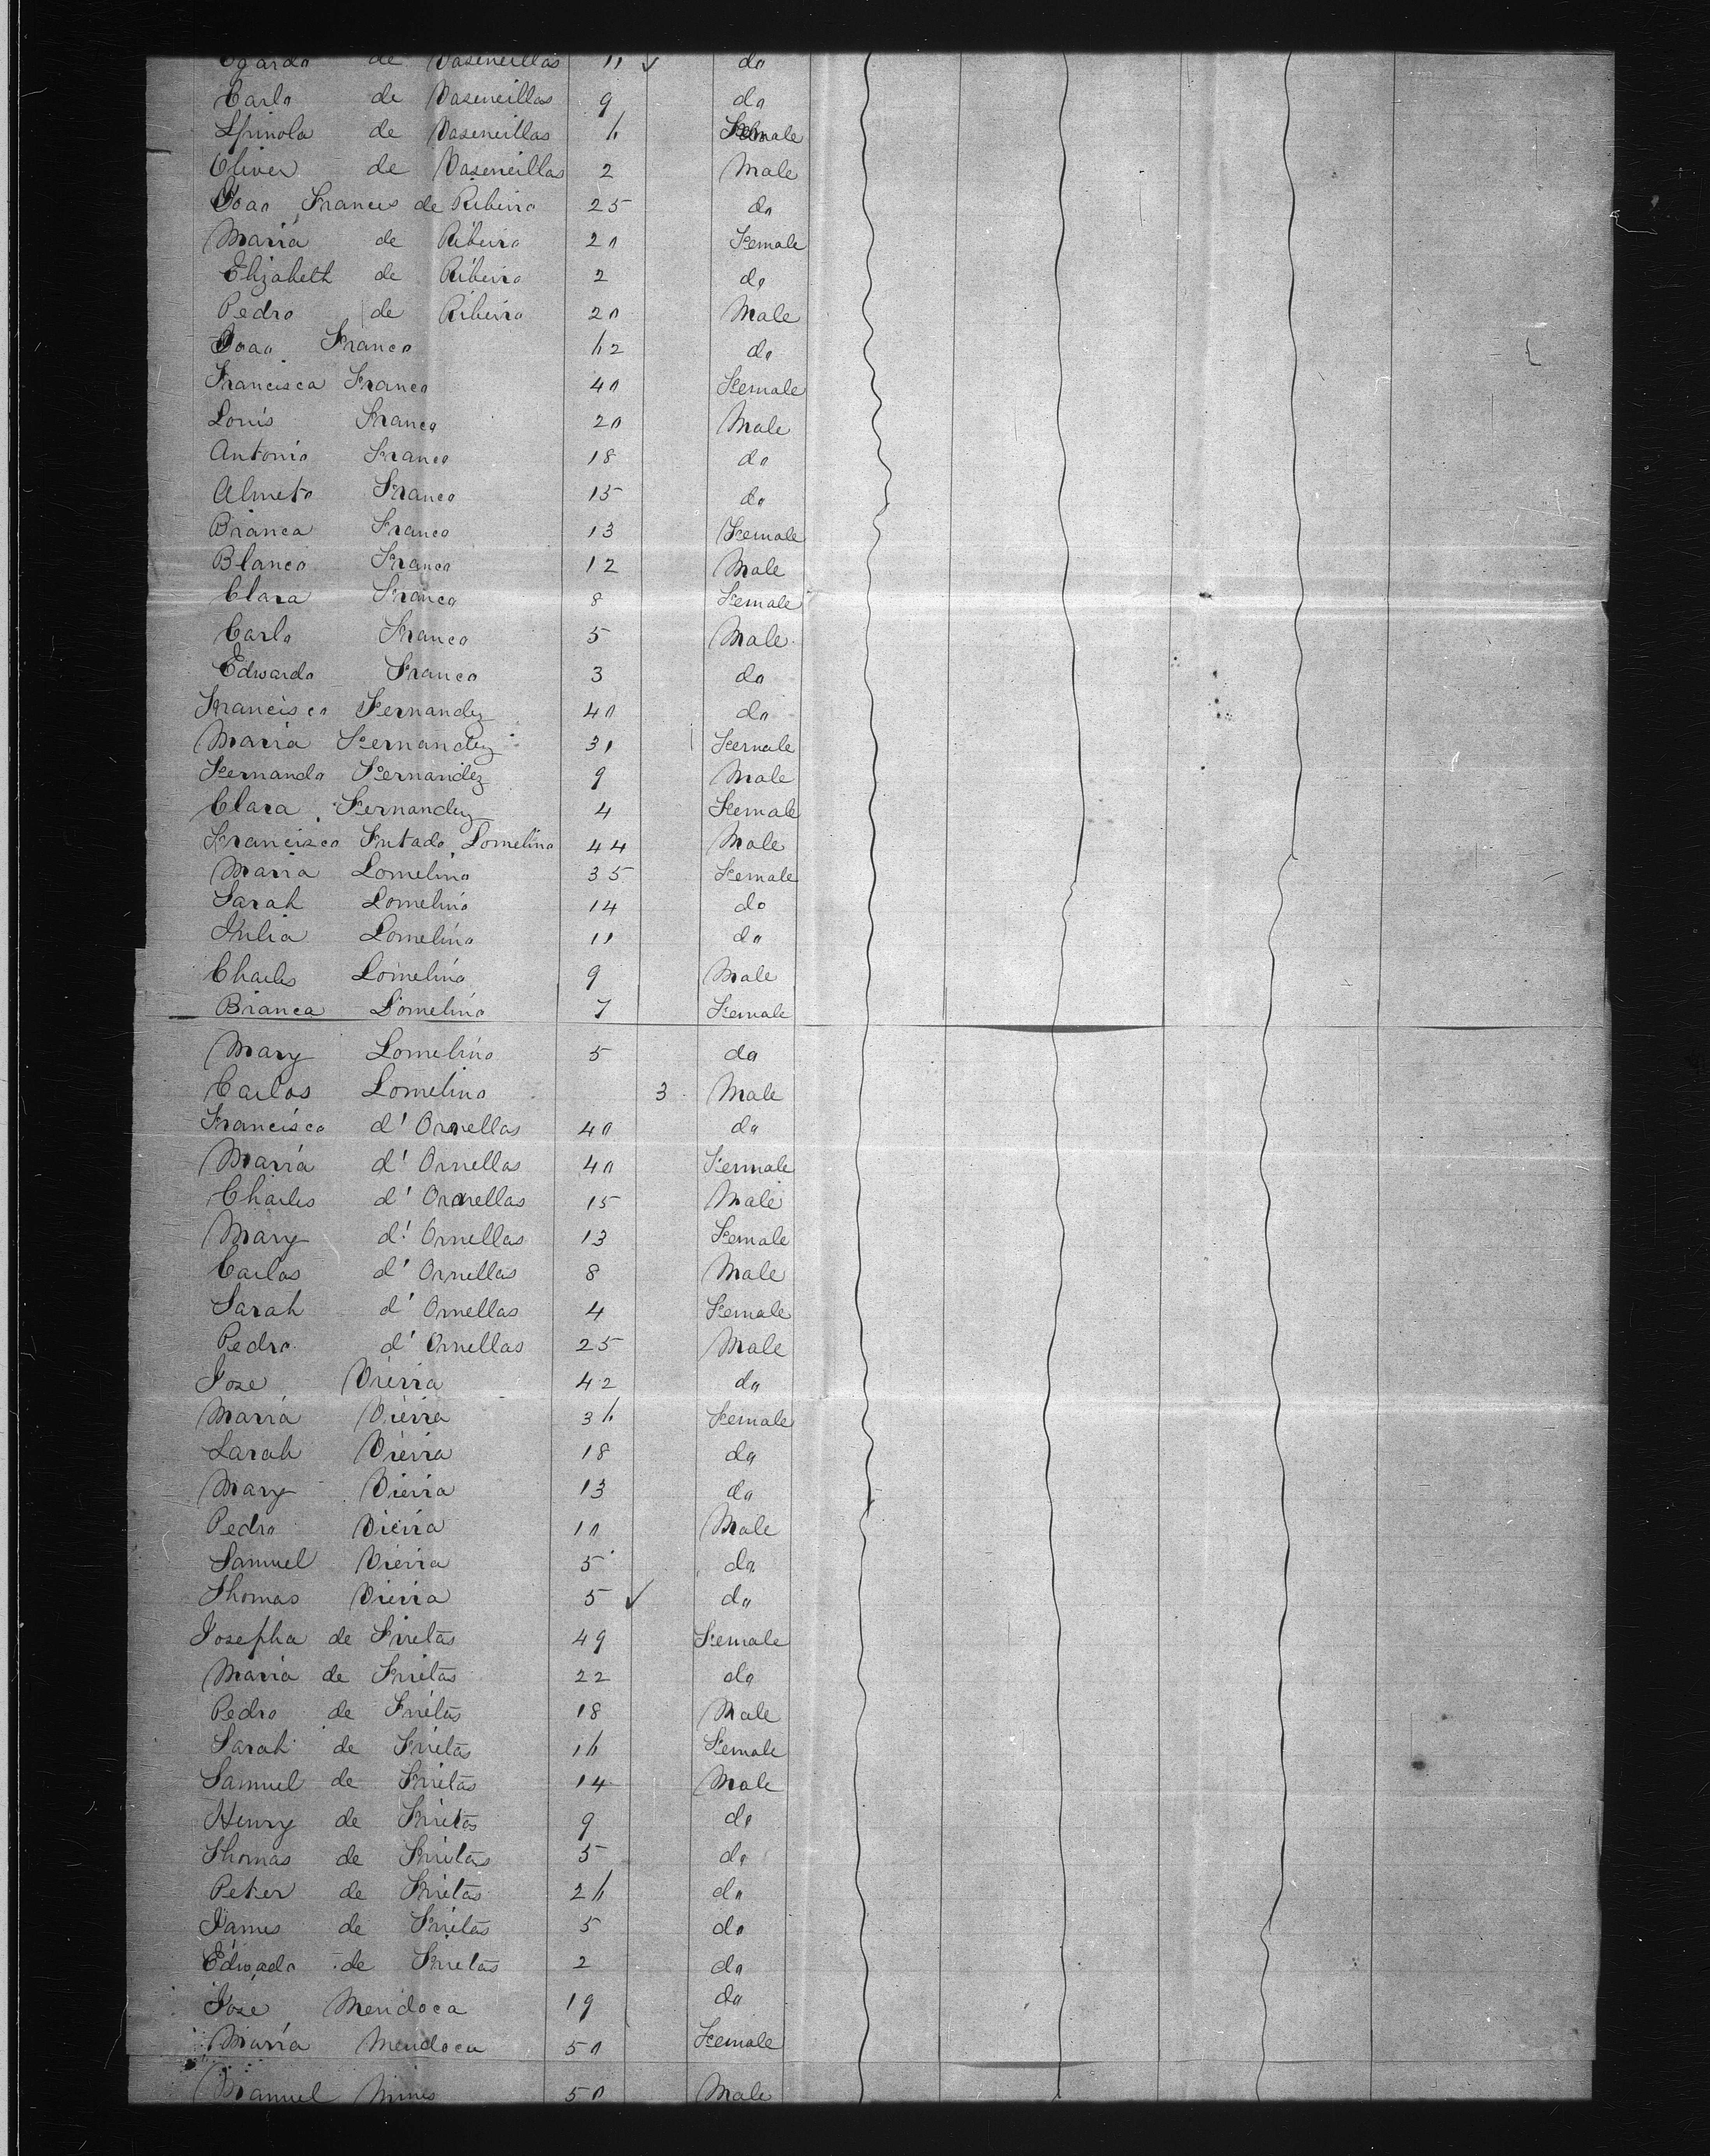 Ogardo de Vasencillos 11 ✓ do
Carlo de Vasencillos 9 do
Spinola de Vasencillos 6 Female
Oliver de Vasencillos 2 Male
Joao Frances de Ribeiro 25 do
Maria de Ribeiro 20 Female
Elizabeth de Ribeiro 2 do
Pedro de Ribeiro 20 Male
Joao Franco 62 do
Francisca Franco 40 Female
Louis Franco 20 Male
Antonio Franco 18 do
Almeto Franco 15 do
Bianca Franco 13 Female
Blanco Franco 12 Male
Clara Franco 8 Female
Carlo Franco 5 Male
Edwardo Franco 3 do
Francisco Fernandez 40 do
Maria Fernandez 31 Female
Fernando Fernandez 9 Male
Clara Fernandez 4 Female
Francisco Frutado Lomelino 44 Male
Maria Lomelino 35 Female
Sarah Lomelino 14 do
Julia Lomelino 11 do
Charles Lomelino 9 Male
Bianca Lomelino 7 Female
Mary Lomelino 5 do
Carlos Lomelino 3 Male
Francisco d' Ornellas 40 do
Maria d' Ornellas 40 Female
Charles d' Ornellas 15 Male
Mary d' Ornellas 13 Female
Carlos d' Ornellas 8 Male
Sarah d' Ornellas 4 Female
Pedro d' Ornellas 25 Male
Jose Vieira 42 do
Maria Vieira 36 Female
Sarah Vieira 18 do
Mary Vieira 13 do
Pedro Vieira 10 Male
Samuel Vieira 5 do
Thomas Vieira 5 ✓ do
Josepha de Frietas 49 Female
Maria de Frietas 22 do
Pedro de Frietas 18 Male
Sarah de Frietas 16 Female
Samuel de Frietas 14 Male
Henry de Frietas 9 do
Thomas de Frietas 5 do
Peter de Frietas 26 do
James de Frietas 5 do
Edwado de Frietas 2 do
Jose Mendoca 19 do
Maria Mendoca 50 Female
Manuel Nunes 50 Male